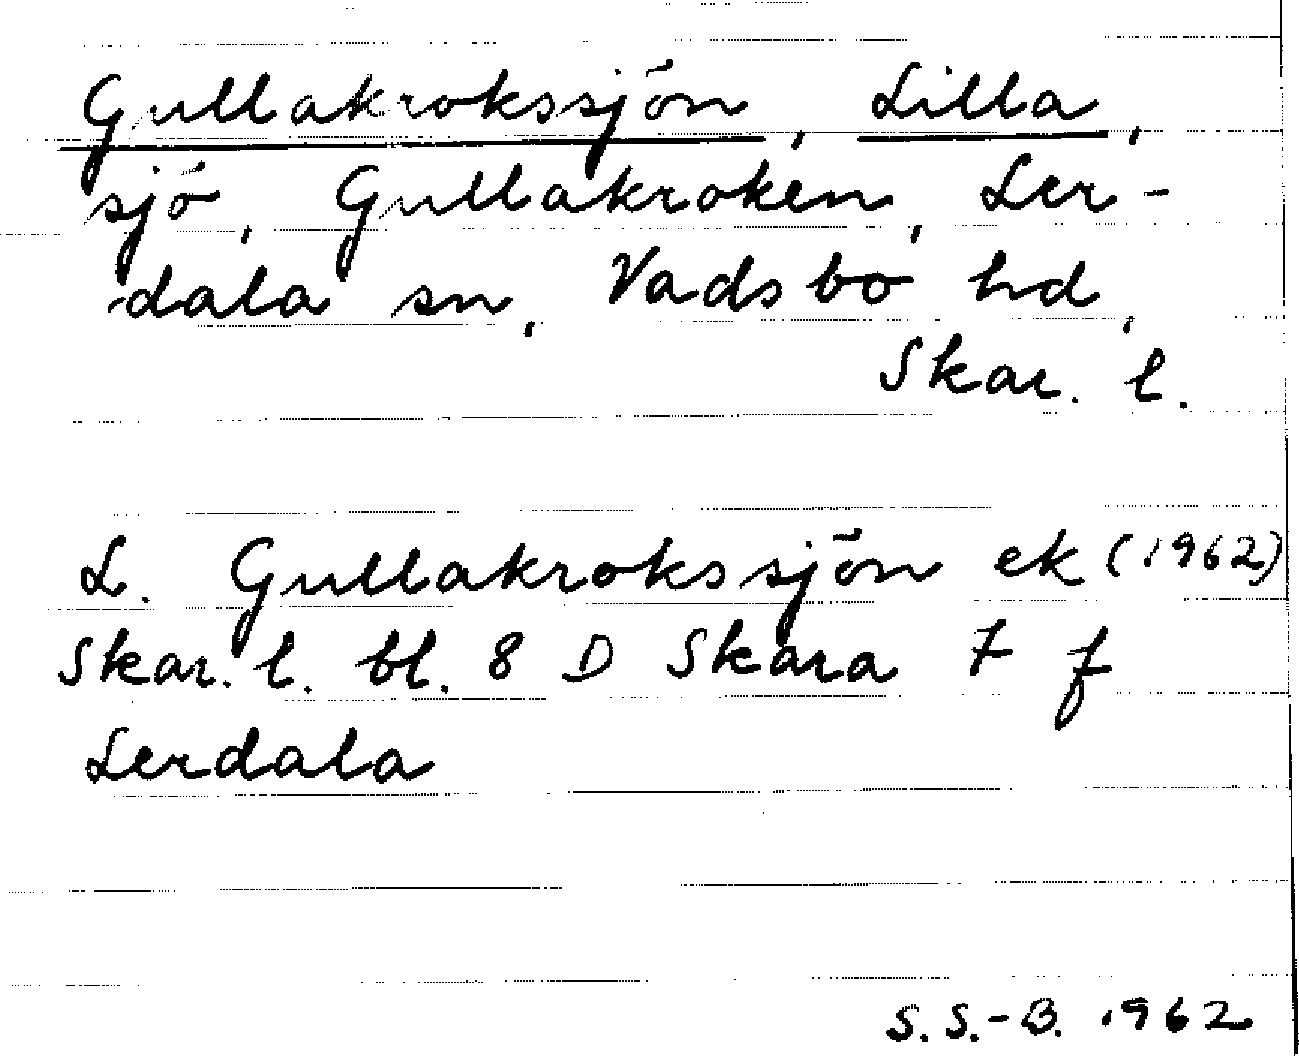 Gullakrokssjön, Lilla,
sjö, Gullakroken, Ler-
dala sn, Vadsbo hd,
Skar. l.
L. Gullakrokssjön ek (1962)
Skar. l. bl. 8 D Skara 7 f
Lerdala
S.S.-B. 1962